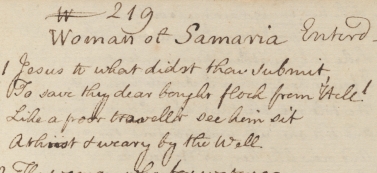 219
Woman of Samaria Enterd
1 Jesus to what didst thou submit,
To save thy dear bought flock from Hell!
Like a poor traveller see him sit
Athirst & weary by the Well.